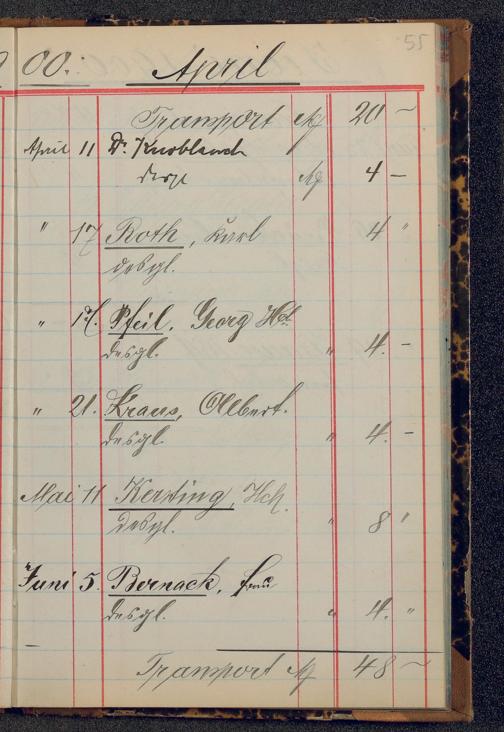 55
00. April
Transport M 20 —
April 11 Dr. Knoblauch
desgl M 4 —
" 17 Roth, Karl 4 "
desgl.
" 17. Pfeil, Georg Hch.
desgl. " 4. —
" 21. Kraus, Albert.
desgl. " 4. —
Mai 11 Kersting, Hch.
desgl. " 8 "
Juni 5. Bernack, Frau
desgl. " 4. "
Transport M 48 —